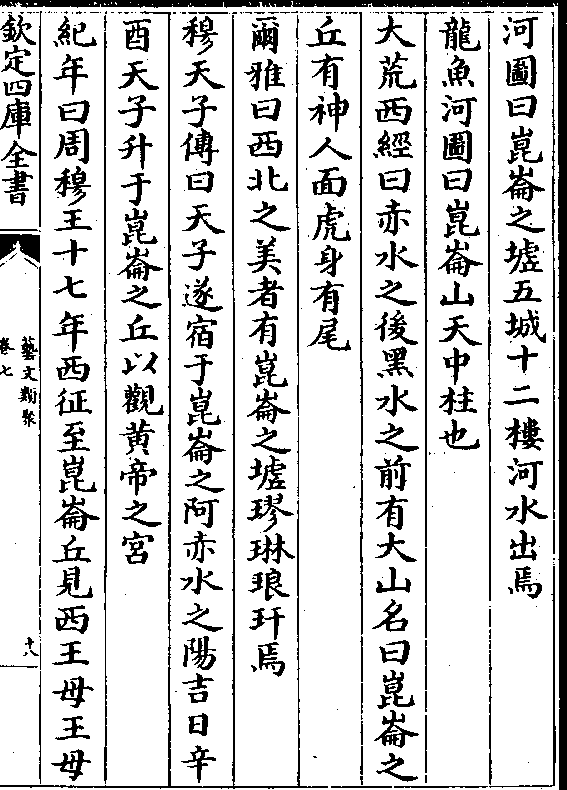 河圖曰崑崙之墟五城十二樓河水出焉
龍魚河圖曰崑崙山天中柱也
大荒西經曰赤水之後黑水之前有大山名曰崑崙之
丘有神人面虎身有尾
爾雅曰西北之美者有崑崙之墟璆琳琅玕焉
穆天子傳曰天子遂宿于崑崙之阿赤水之陽吉日辛
酉天子升于崑崙之丘以觀黄帝之宮
紀年曰周穆王十七年西征至崑崙丘見西王母王母
欽定四庫全書
藝文類聚
卷七
十八